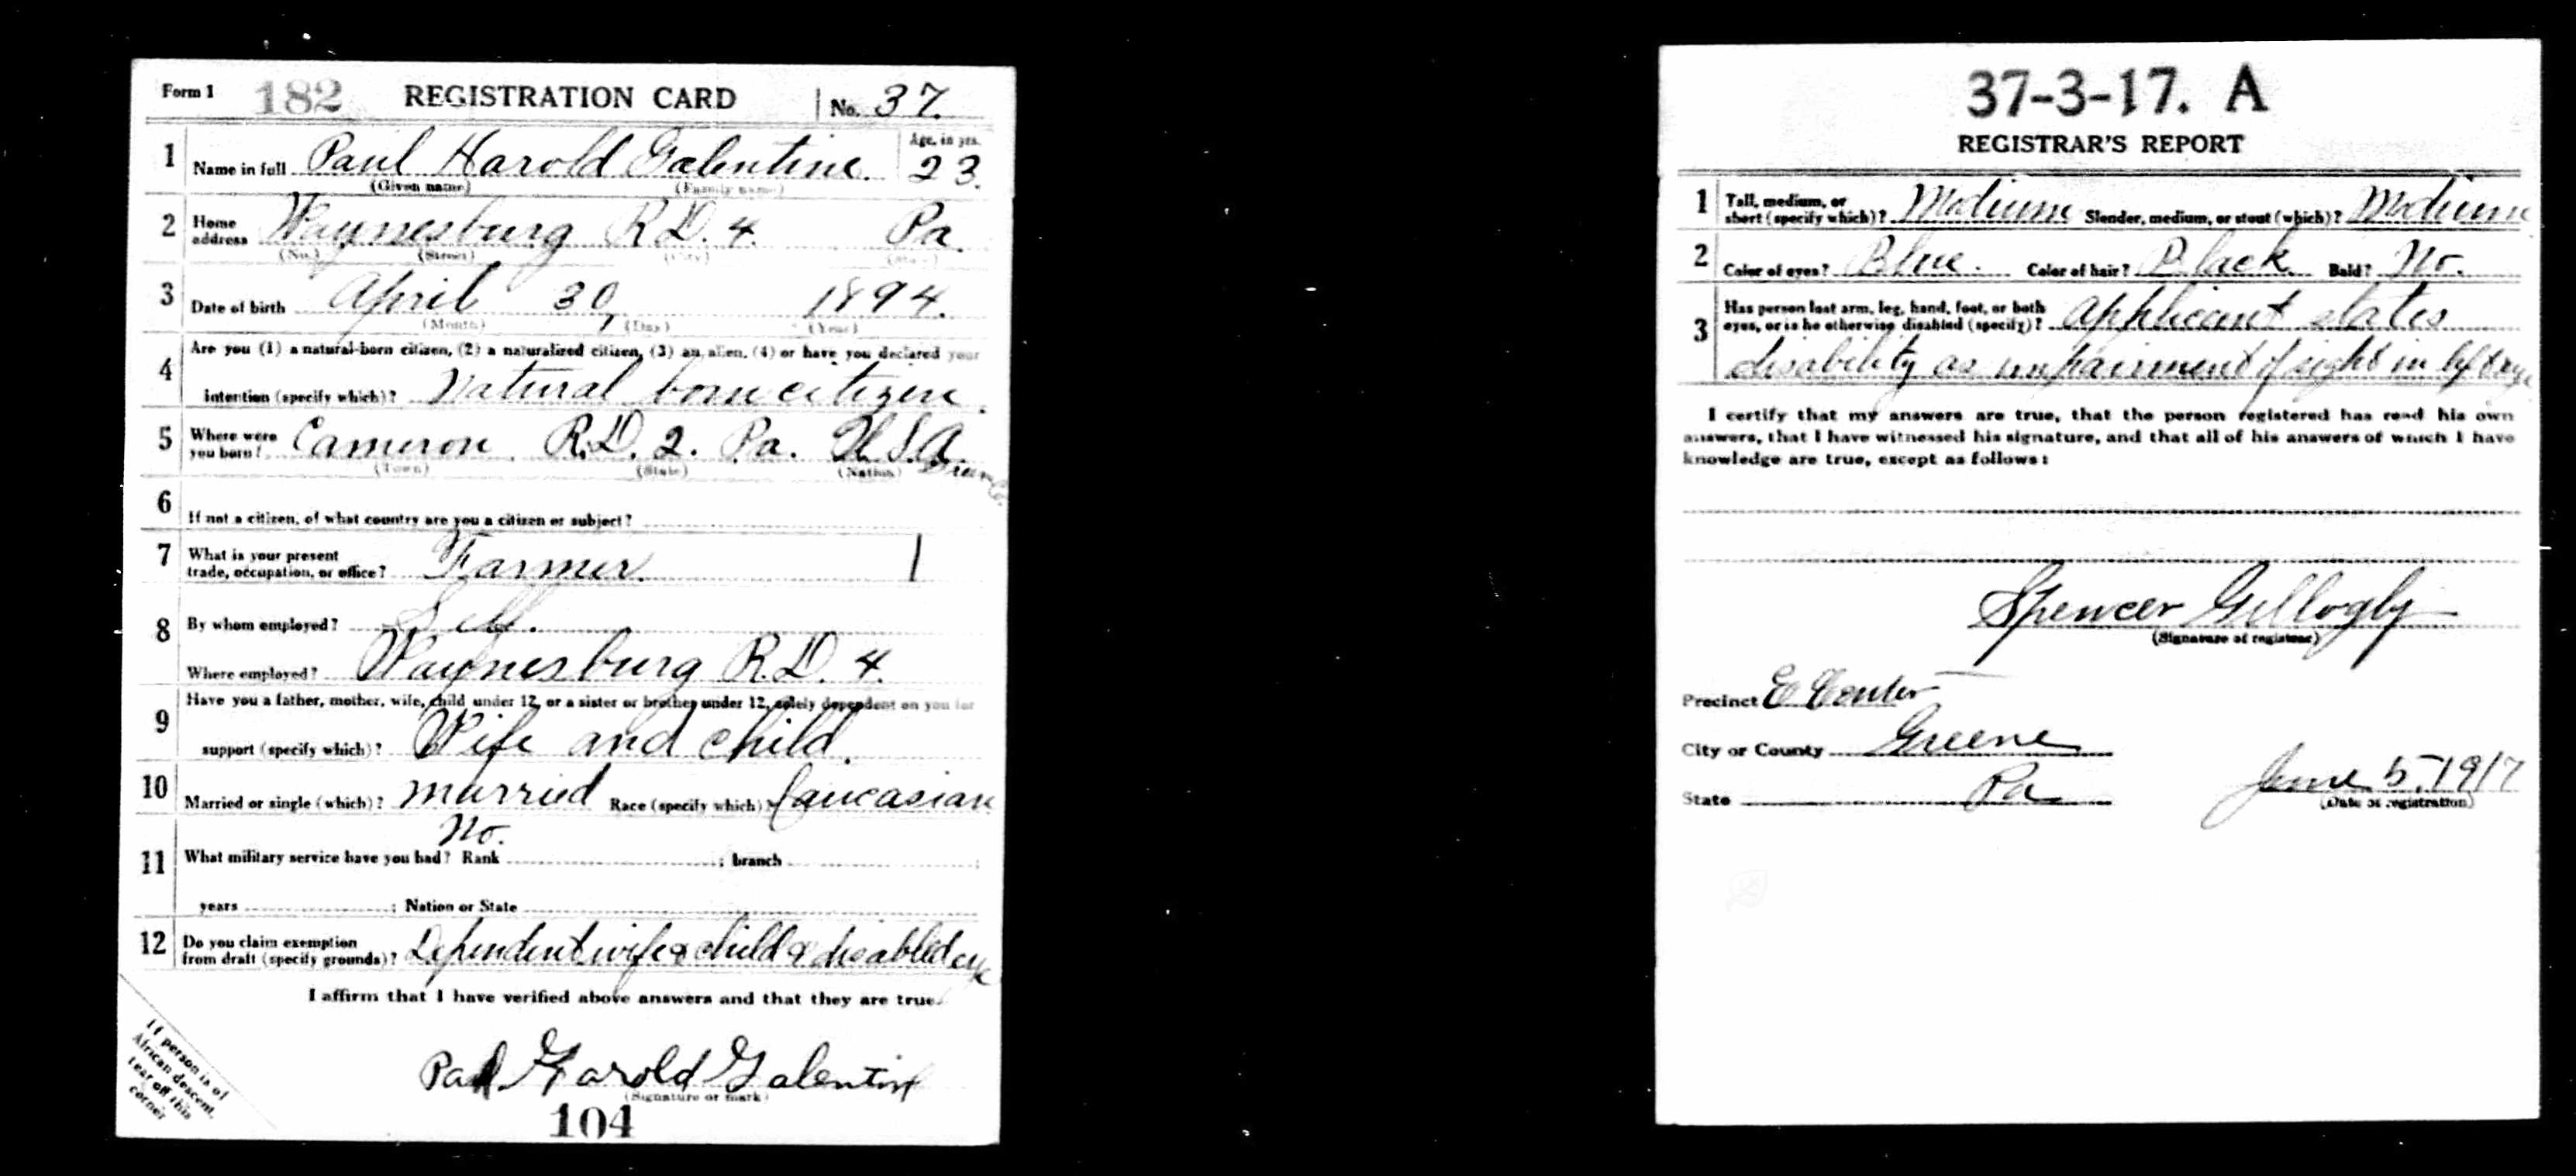 Form 1 182 REGISTRATION CARD No. 37.
1 Name in full Paul Harold Galentine. Age, in yrs. 23.
(Given name) (Family name)
2 Home address Waynesburg R.D. 4. Pa.
(No.) (Street) (City) (State)
3 Date of birth April 30, 1894.
(Month) (Day) (Year)
4 Are you (1) a natural-born citizen, (2) a naturalized citizen, (3) an alien, (4) or have you declared your
intention (specify which)? Natural born citizen.
5 Where were you born? Cameron R.D. 2. Pa. U.S.A.
(Town) (State) (Nation)
6 If not a citizen, of what country are you a citizen or subject?
7 What is your present trade, occupation, or office? Farmer. 1
8 By whom employed? Self.
Where employed? Waynesburg R.D. 4.
9 Have you a father, mother, wife, child under 12, or a sister or brother under 12, solely dependent on you for
support (specify which)? Wife and child.
10 Married or single (which)? married Race (specify which)? Caucasian
No.
11 What military service have you had? Rank ; branch ;
years ; Nation or State
12 Do you claim exemption from draft (specify grounds)? Dependent wife & child & disabled eye
I affirm that I have verified above answers and that they are true.
Paul Harold Galentine
(Signature or mark)
104
If person is of
African descent,
tear off this
corner
37-3-17. A
REGISTRAR'S REPORT
1 Tall, medium, or short (specify which)? Medium Slender, medium, or stout (which)? Medium
2 Color of eyes? Blue. Color of hair? Black Bald? No.
3 Has person lost arm, leg, hand, foot, or both eyes, or is he otherwise disabled (specify)? Applicant states
disability as impairment of sight in left eye
I certify that my answers are true, that the person registered has read his own
answers, that I have witnessed his signature, and that all of his answers of which I have
knowledge are true, except as follows:
Spencer Gillogly
(Signature of registrar)
Precinct E Center
City or County Greene
State Pa June 5, 1917
(Date of registration)